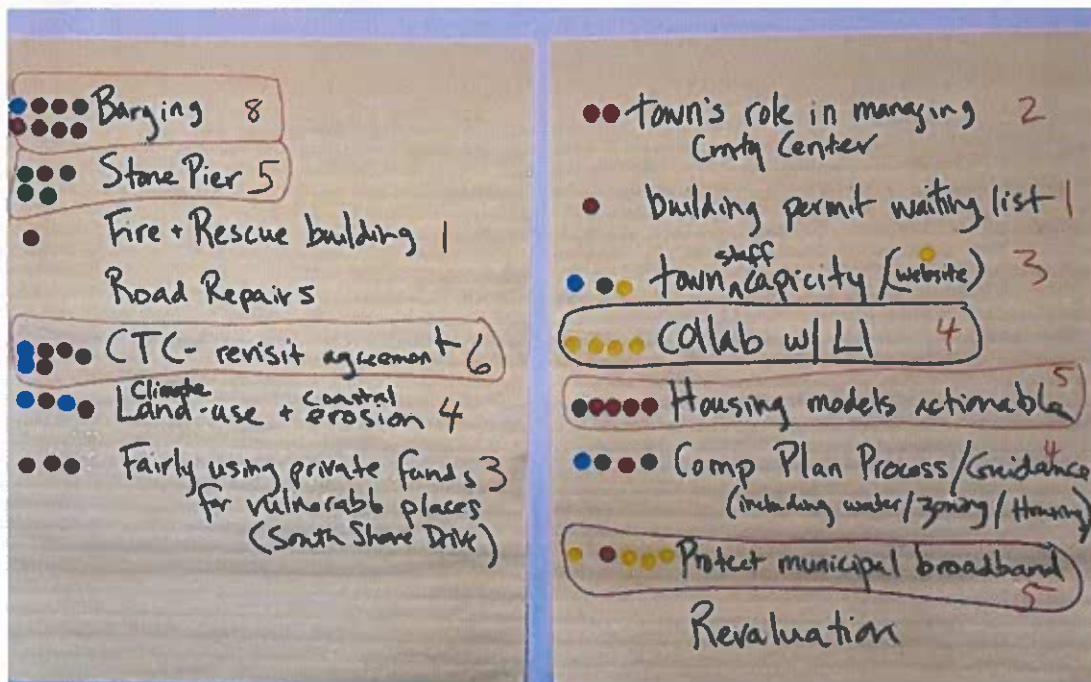 Barging 8
Stone Pier 5
Fire + Rescue building 1
Road Repairs
CTC- revisit agreement 6
Climate coastal
Land-use + erosion 4
Fairly using private funds 3
for vulnerable places
(South Shore Drive)
town's role in managing 2
Cmty Center
building permit waiting list 1
staff
town ^ capicity / (website) 3
Collab w/ LI 4
Housing models actionable 5
Comp Plan Process/Guidance 4
(including water/zoning/Housing)
Protect municipal broadband
5
Revaluation